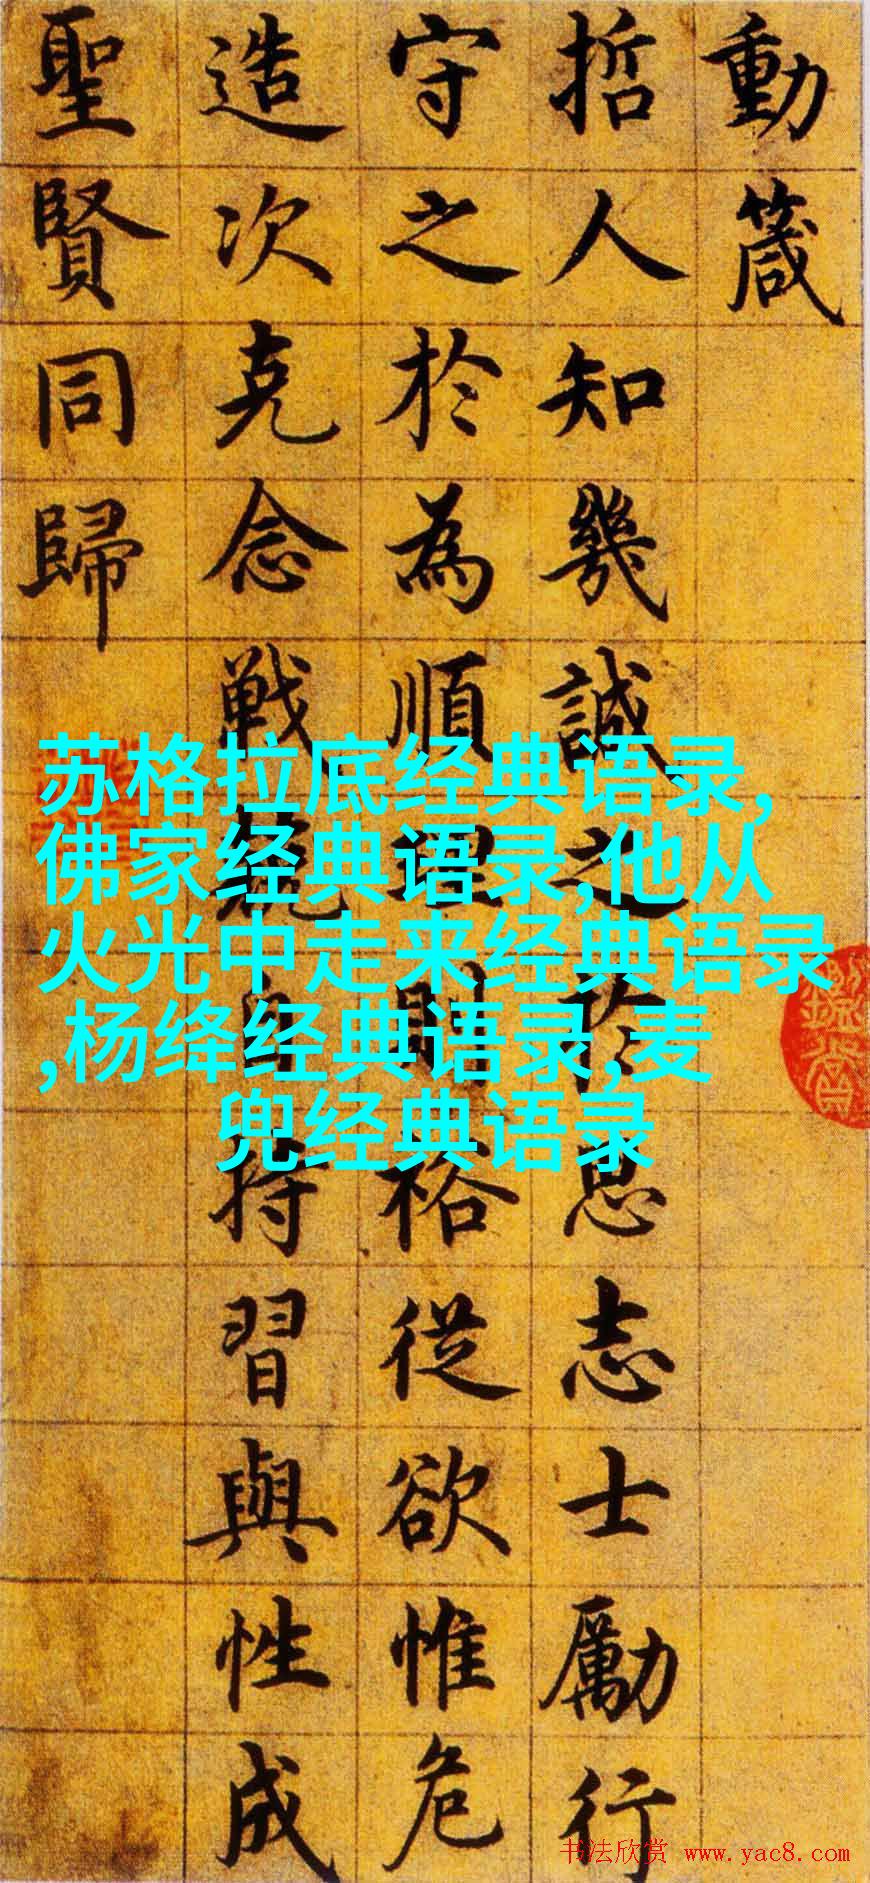 動箴
哲人知幾誠之於思志士勵行
守之於為順理則裕從欲惟危
造次克念戦兢自持習與性成
聖賢同歸
苏格拉底经典语录,
佛家经典语录,他从
火光中走来经典语录
,杨绛经典语录,麦
兜经典语录
书法欣赏 www.yac8.com